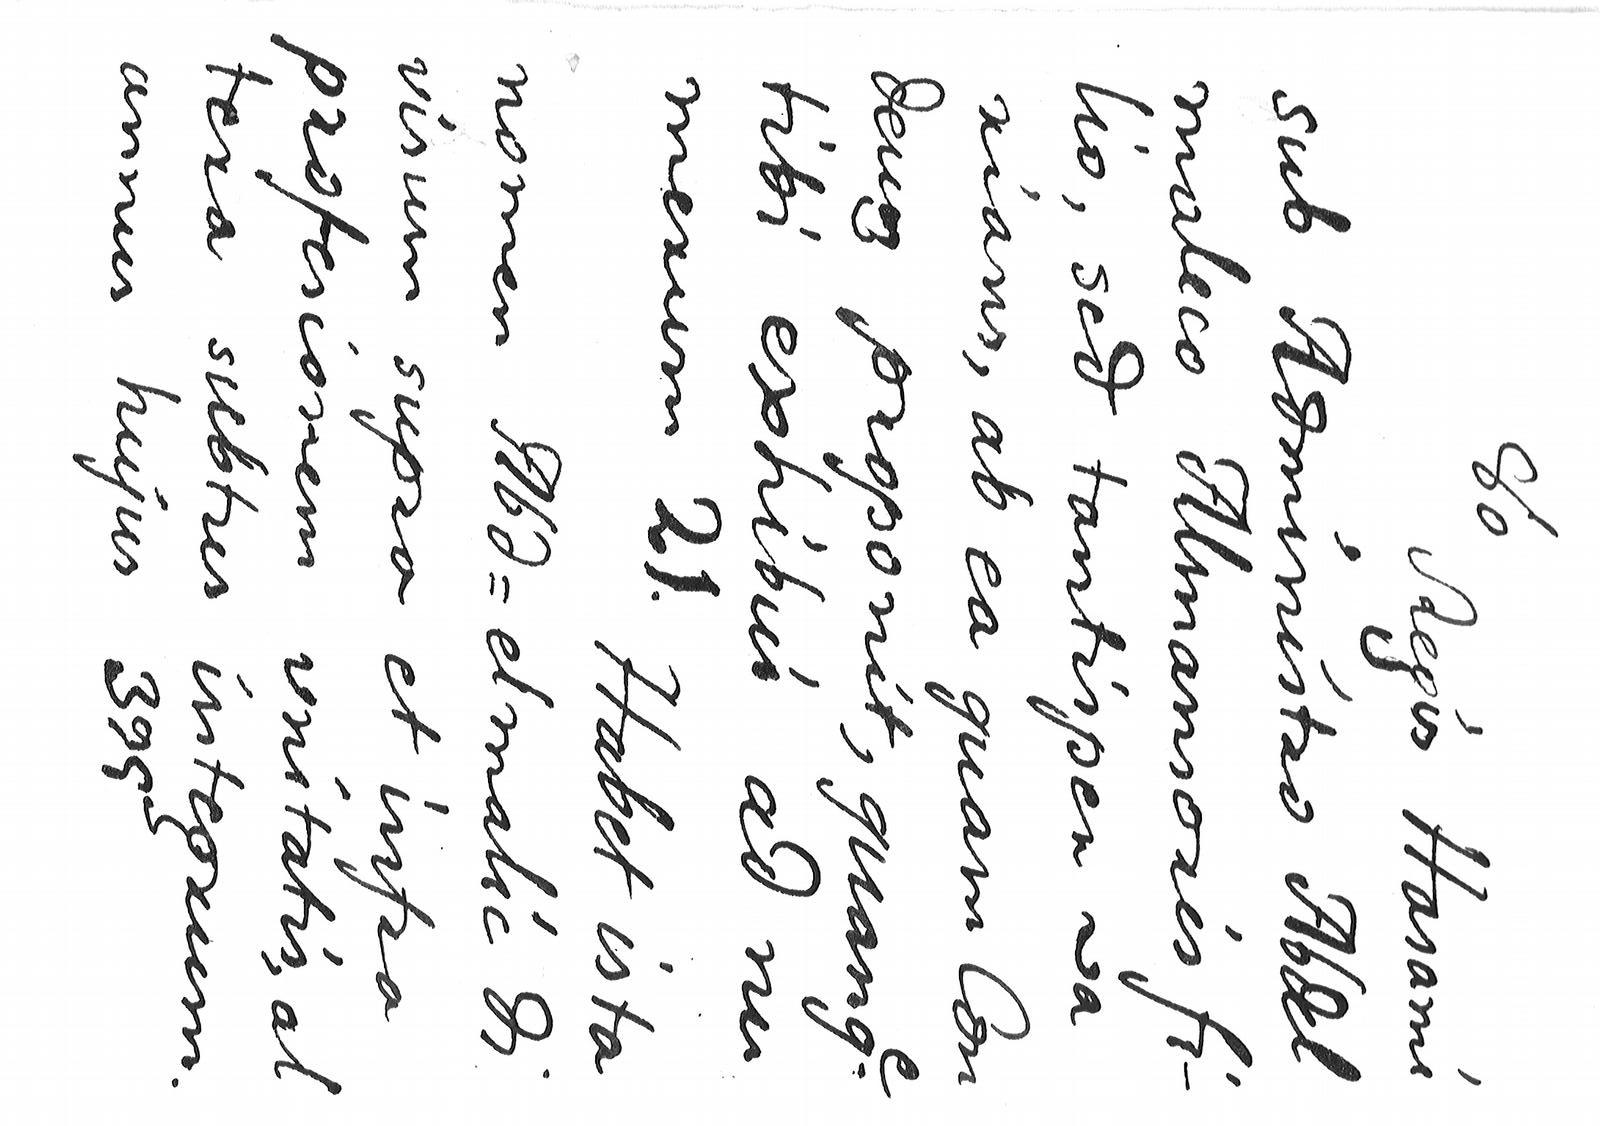 80
Regis Hasami
sub Administro Abdel
maleco Almansoris fi-
lio, sed tantisper va
rians, ab ea quam Con
deus proponit, quamqe
tibi exhibui ad nu
merum 21. Habet ista
nomen Abd=elmalic di
visum supra et infra
professionem unitatis, al
tera subtus integrum.
annus hujus 395us